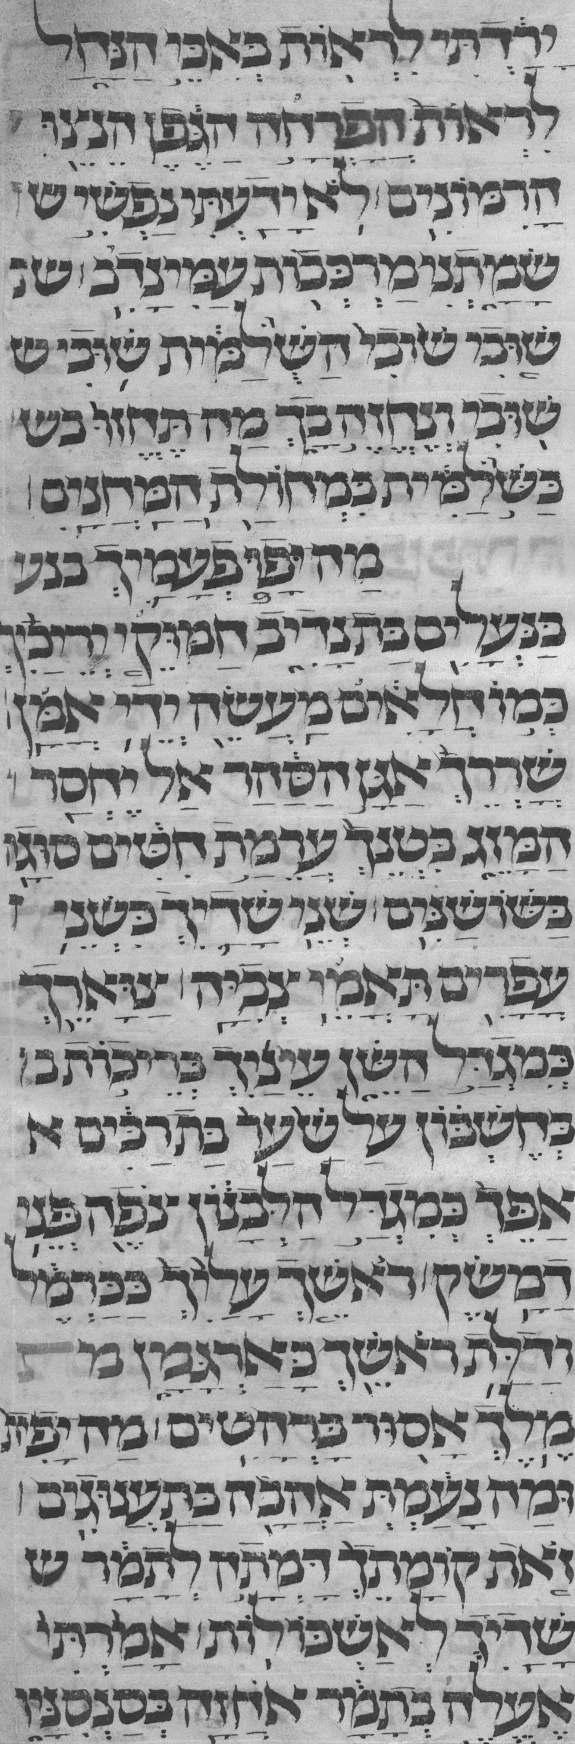 ירדתי לראות באבי הנחל
לראות הפרחה הגפן הניצו
הרמונים לא ידעתי נפשי ש
שמתני מרכבות עמינדב שו
שובי שובי השלמית שובי ש
שובי ונחזה בך מה תחזו בש
בשלמית כמחולת המחנים
מה יפו פעמיך בנע
בנעלים בת נדיב חמוקי יריכיך
כמו חלאים מעשה ידי אמן
שררך אגן הסהר אל יחסר
המזג בטנך ערמת חטים סוגו
בשושנים שני שדיך כשני
עפרים תאמי צביה צוארך
כמגדל השן עיניך בריכות ב
בחשבון על שער בת רבים א
אפך כמגדל הלבנון צפה פני
דמשק ראשך עליך ככרמל
ודלת ראשך כארגמן מ
מלך אסור ברהטים מה יפית
ומה נעמת אהבה בתענוגים
זאת קומתך דמתה לתמר ש
שדיך לאשכולות אמרתי
אעלה בתמר אחזה בסנסניו